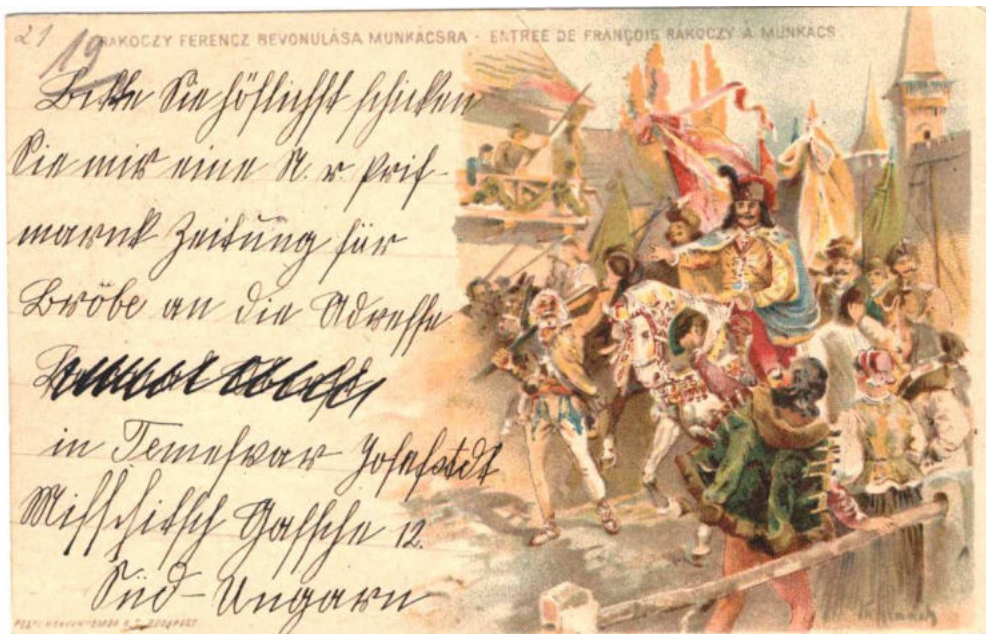 21
19
RAKOCZY FERENCZ BEVONULÁSA MUNKÁCSRA · ENTRÉE DE FRANÇOIS RÁKOCZY A MUNKÁCS.
Bitte Sie höflichst schicken
Sie mir eine N. r Prif-
marnk Zeitung für
Bröbe an die Adresse
in Temesvar Josefstdt
Gassche 12.
Süd-Ungarn
BUDAPEST